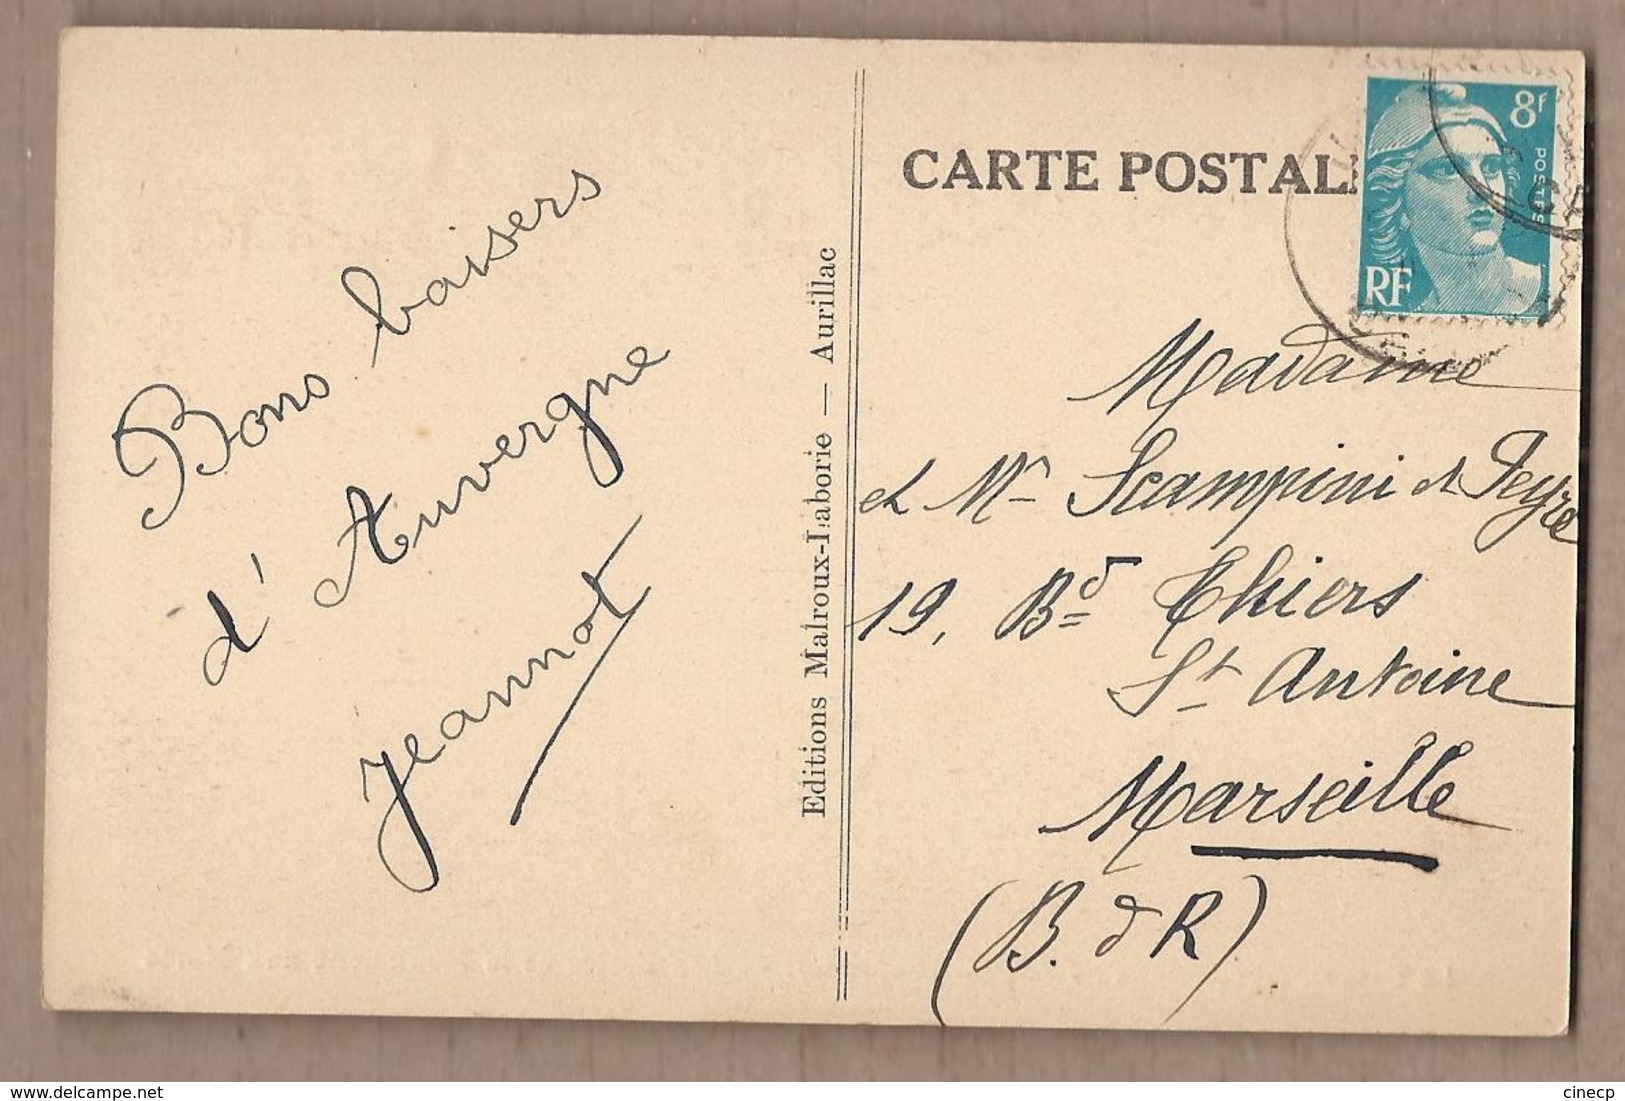 Bons baisers
d'Auvergne
Jeannot
Editions Malroux-Laborie — Aurillac
CARTE POSTAL
8F
POSTES
RF
Madame
et Mr Scampini et Peyre
19, Bd Thiers
St Antoine
Marseille
(B. d R)
delcampe.net
cinecp